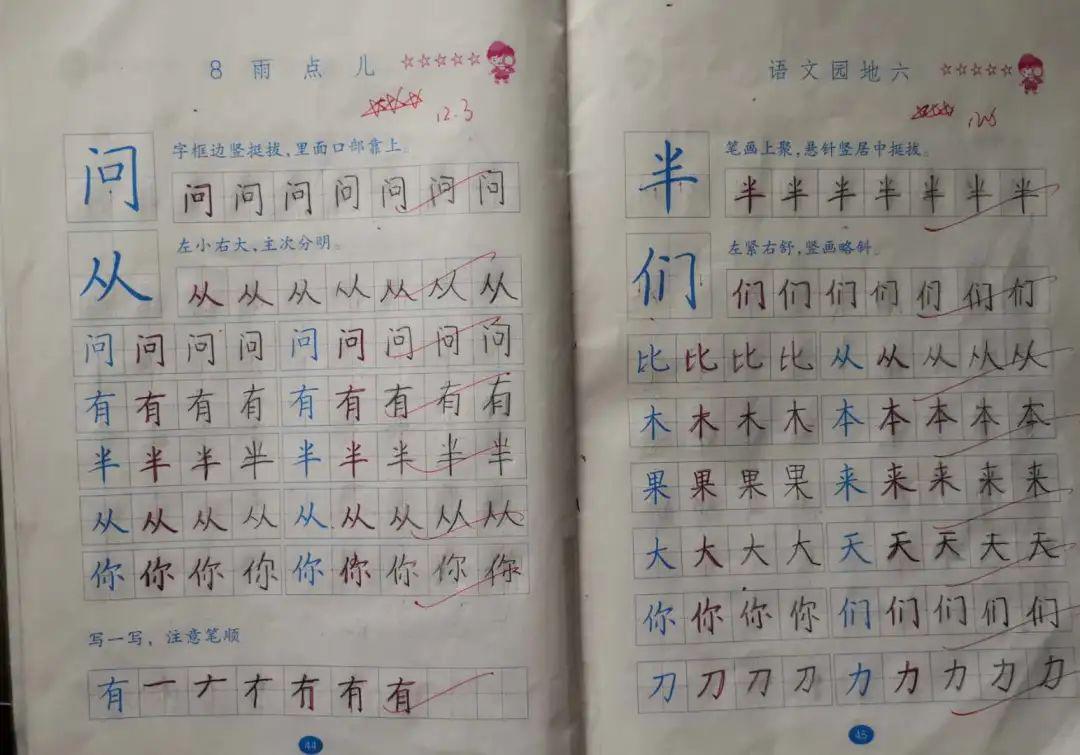 8 雨点儿
12.3
问
字框边竖挺拔,里面口部靠上。
问问问问问问问
从
左小右大,主次分明。
从从从从从从从
问问问问问问问问问
有有有有有有有有有
半半半半半半半半半
从从从从从从从从从
你你你你你你你你你
写一写，注意笔顺
有一ナ冇有有
44
语文园地六
半
笔画上聚,悬针竖居中挺拔。
半半半半半半半
们
左紧右舒,竖画略斜。
们们们们们们们
比比比比从从从从从
木木木木本本本本本
果果果果来来来来来
大大大大天天天天天
你你你你们们们们们
刀刀刀刀力力力力力
45